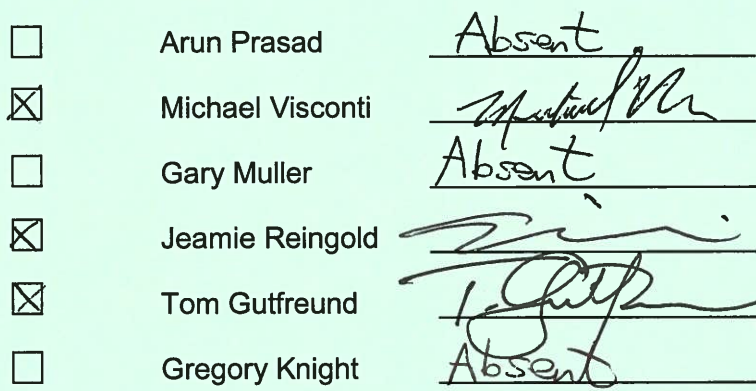 ☐ Arun Prasad Absent
☒ Michael Visconti
☐ Gary Muller Absent
☒ Jeamie Reingold
☒ Tom Gutfreund T. Gutfreund
☐ Gregory Knight Absent